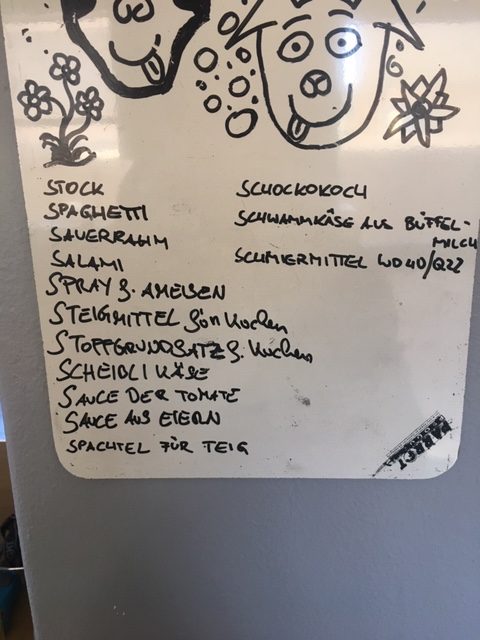 STOCK
SPAGHETTI
SAUERRAHM
SALAMI
SPRAY G. AMEISEN
STEIGMITTEL für Kuchen
STOFFGRUNDSATZ f. Kuchen
SCHEIBLI KÄSE
SAUCE DER TOMATE
SAUCE AUS EIERN
SPACHTEL FÜR TEIG
SCHOCKOKOCH
SCHWAMMKÄSE AUS BÜFFEL-
MILCH
SCHMIERMITTEL WD40/
PARROT